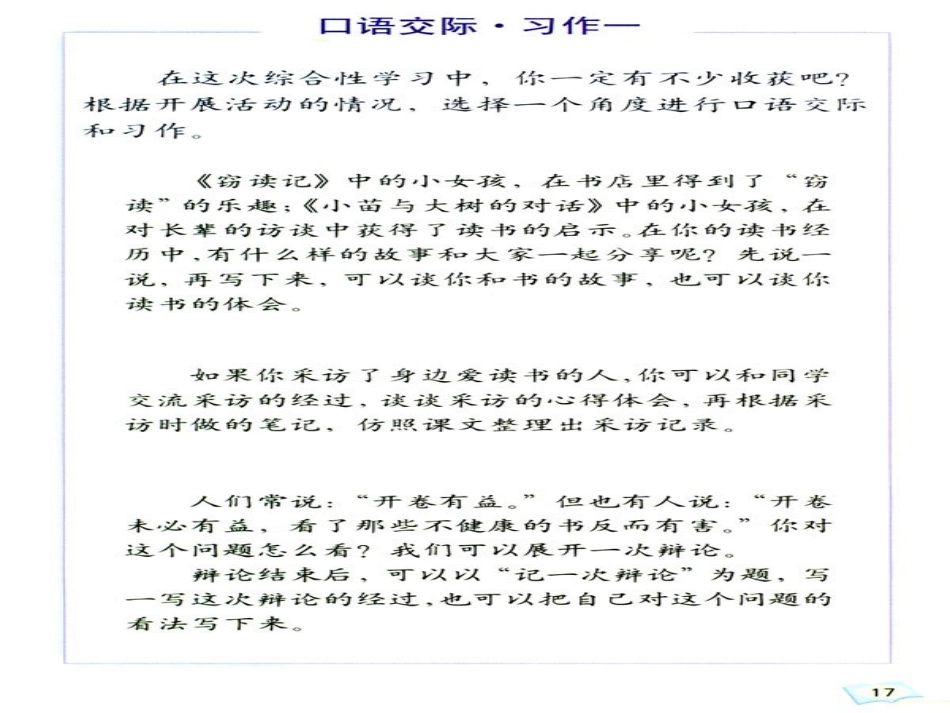 口语交际·习作一
在这次综合性学习中，你一定有不少收获吧？
根据开展活动的情况，选择一个角度进行口语交际
和习作。
《窃读记》中的小女孩，在书店里得到了“窃
读”的乐趣；《小苗与大树的对话》中的小女孩，在
对长辈的访谈中获得了读书的启示。在你的读书经
历中，有什么样的故事和大家一起分享呢？先说一
说，再写下来，可以谈你和书的故事，也可以谈你
读书的体会。
如果你采访了身边爱读书的人，你可以和同学
交流采访的经过，谈谈采访的心得体会，再根据采
访时做的笔记，仿照课文整理出采访记录。
人们常说：“开卷有益。”但也有人说：“开卷
未必有益，看了那些不健康的书反而有害。”你对
这个问题怎么看？我们可以展开一次辩论。
辩论结束后，可以以“记一次辩论”为题，写
一写这次辩论的经过，也可以把自己对这个问题的
看法写下来。
17